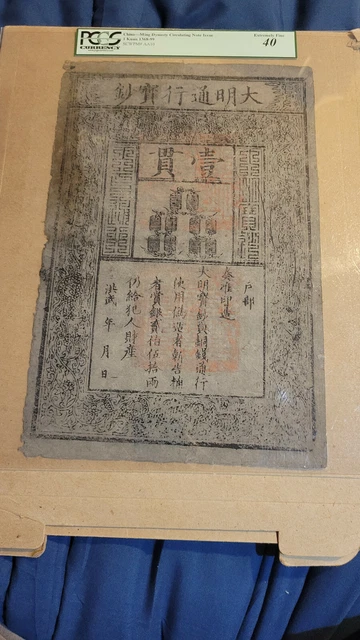 PCGS
CURRENCY
China - Ming Dynasty Circulating Note Issue
1 Kuan 1368-99
Extremely Fine
40
大明通行寶鈔
壹貫
戶部
奏准印造
大明寶鈔與銅錢通行
使用偽造者斬告捕
者賞銀貳伯伍拾兩
仍給犯人財產
洪武 年 月 日